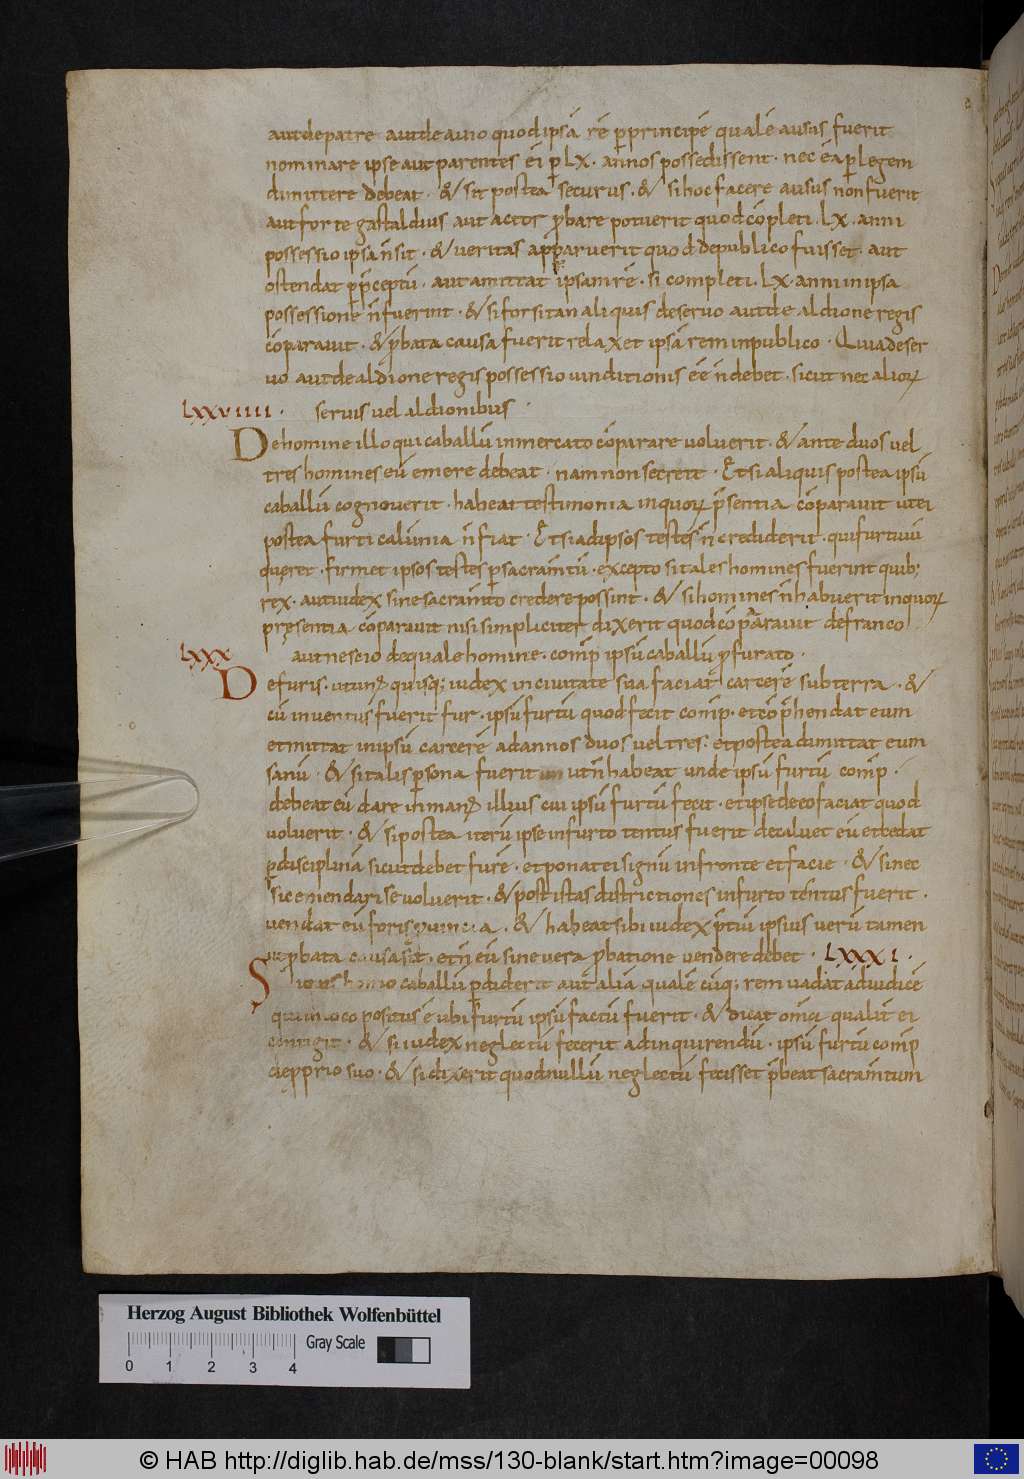 aut depatre aut de auio quod ipsā rē p̱principē qualē ausus fuerit
nominare ipse aut parentes ei p̱ LX · annos possedissent · nec ea p̱ legem
dimittere debeat · & sit postea securus · & si hoc facere ausus non fuerit
aut forte gastaldius aut actor ꝓbare potuerit quod cōpleti · LX · anni
possessio ipsa n̄ sit · & ueritas apparuerit quod depublico fuisset · aut
ostendat p̱ p̄ceptū · aut amittat ipsam rē · si completi · LX · anni in ipsa
possessione n̄ fuerint · & si forsitan aliquis deseruo aut de aldione regis
cōparauit · & ꝓbata causa fuerit relaxet ipsā rem inpublico · Quia deser
uo aut de aldione regis possessio uinditionis eē n̄ debet · sicut nec alioꝝ
LXXVIIII · seruis uel aldionibus ·
De homine illo qui caballū in mercato cōparare uoluerit · & ante duos uel
tres homines eū emere debeat · nam non secreit · Et si aliquis postea ipsū
caballū cognouerit · habeat testimonia inquoꝝ p̄sentia cōparauit ut ei
postea furti calūnia n̄ fiat · Et si ad ipsos testes n̄ crediderit · qui furtiuū
queret · firmet ipsos testes p̱ sacramtū · excepto si tales homines fuerint quib;
rex · aut iudex sine sacramto credere possint · & si homines n̄ habuerit inquoꝝ
pręsentia cōparauit nisi simpliciter dixerit quod cōparauit de franco
LXXX aut nescio de quale homine · comp̄ ipsū caballū ꝓ furato ·
De furis · ut unꝰ quisq; iudex in ciuitate sua faciat carcerē subterra · &
cū inuentus fuerit fur · ipsū furtū quod fecit comp̄ · et cōp̄hendat eum
et mittat in ipsū carcerē ad annos duos uel tres : et postea dimittat eum
sanū · & si talis p̱sona fuerit ut n̄ habeat unde ipsū furtū comp̄ ·
debeat eū dare in manꝰ illius cui ipsū furtū fecit · et ipse de eo faciat quod
uoluerit · & si postea iterū ipse in furto tentus fuerit decaluet eū et cedat
p̱ disciplinā sicut debet furē · et ponat ei signū in fronte et facie · & si nec
sic emendari se uoluerit · & post istas districtiones in furto tentus fuerit ·
uendat eū foris · & habeat sibi iudex p̄tiū ipsius uerū tamen
ut ꝓbata causa sit · et n̄ eū sine uera ꝓbatione uendere debet · LXXXI ·
Si caballū p̱diderit aut aliā qualē cūq; rem uadat ad iudicē
qui in loco positus ē ubi furtū ipsū factū fuerit · & dicat omia qualit ei
contigit · & si iudex neglectū fecerit ad inquirendū · ipsū furtū comp̄
de ꝓprio suo · & si dixerit quod nullū neglectū fecisset p̄beat sacramtum
Herzog August Bibliothek Wolfenbüttel
Gray Scale
0 1 2 3 4
© HAB http://diglib.hab.de/mss/130-blank/start.htm?image=00098